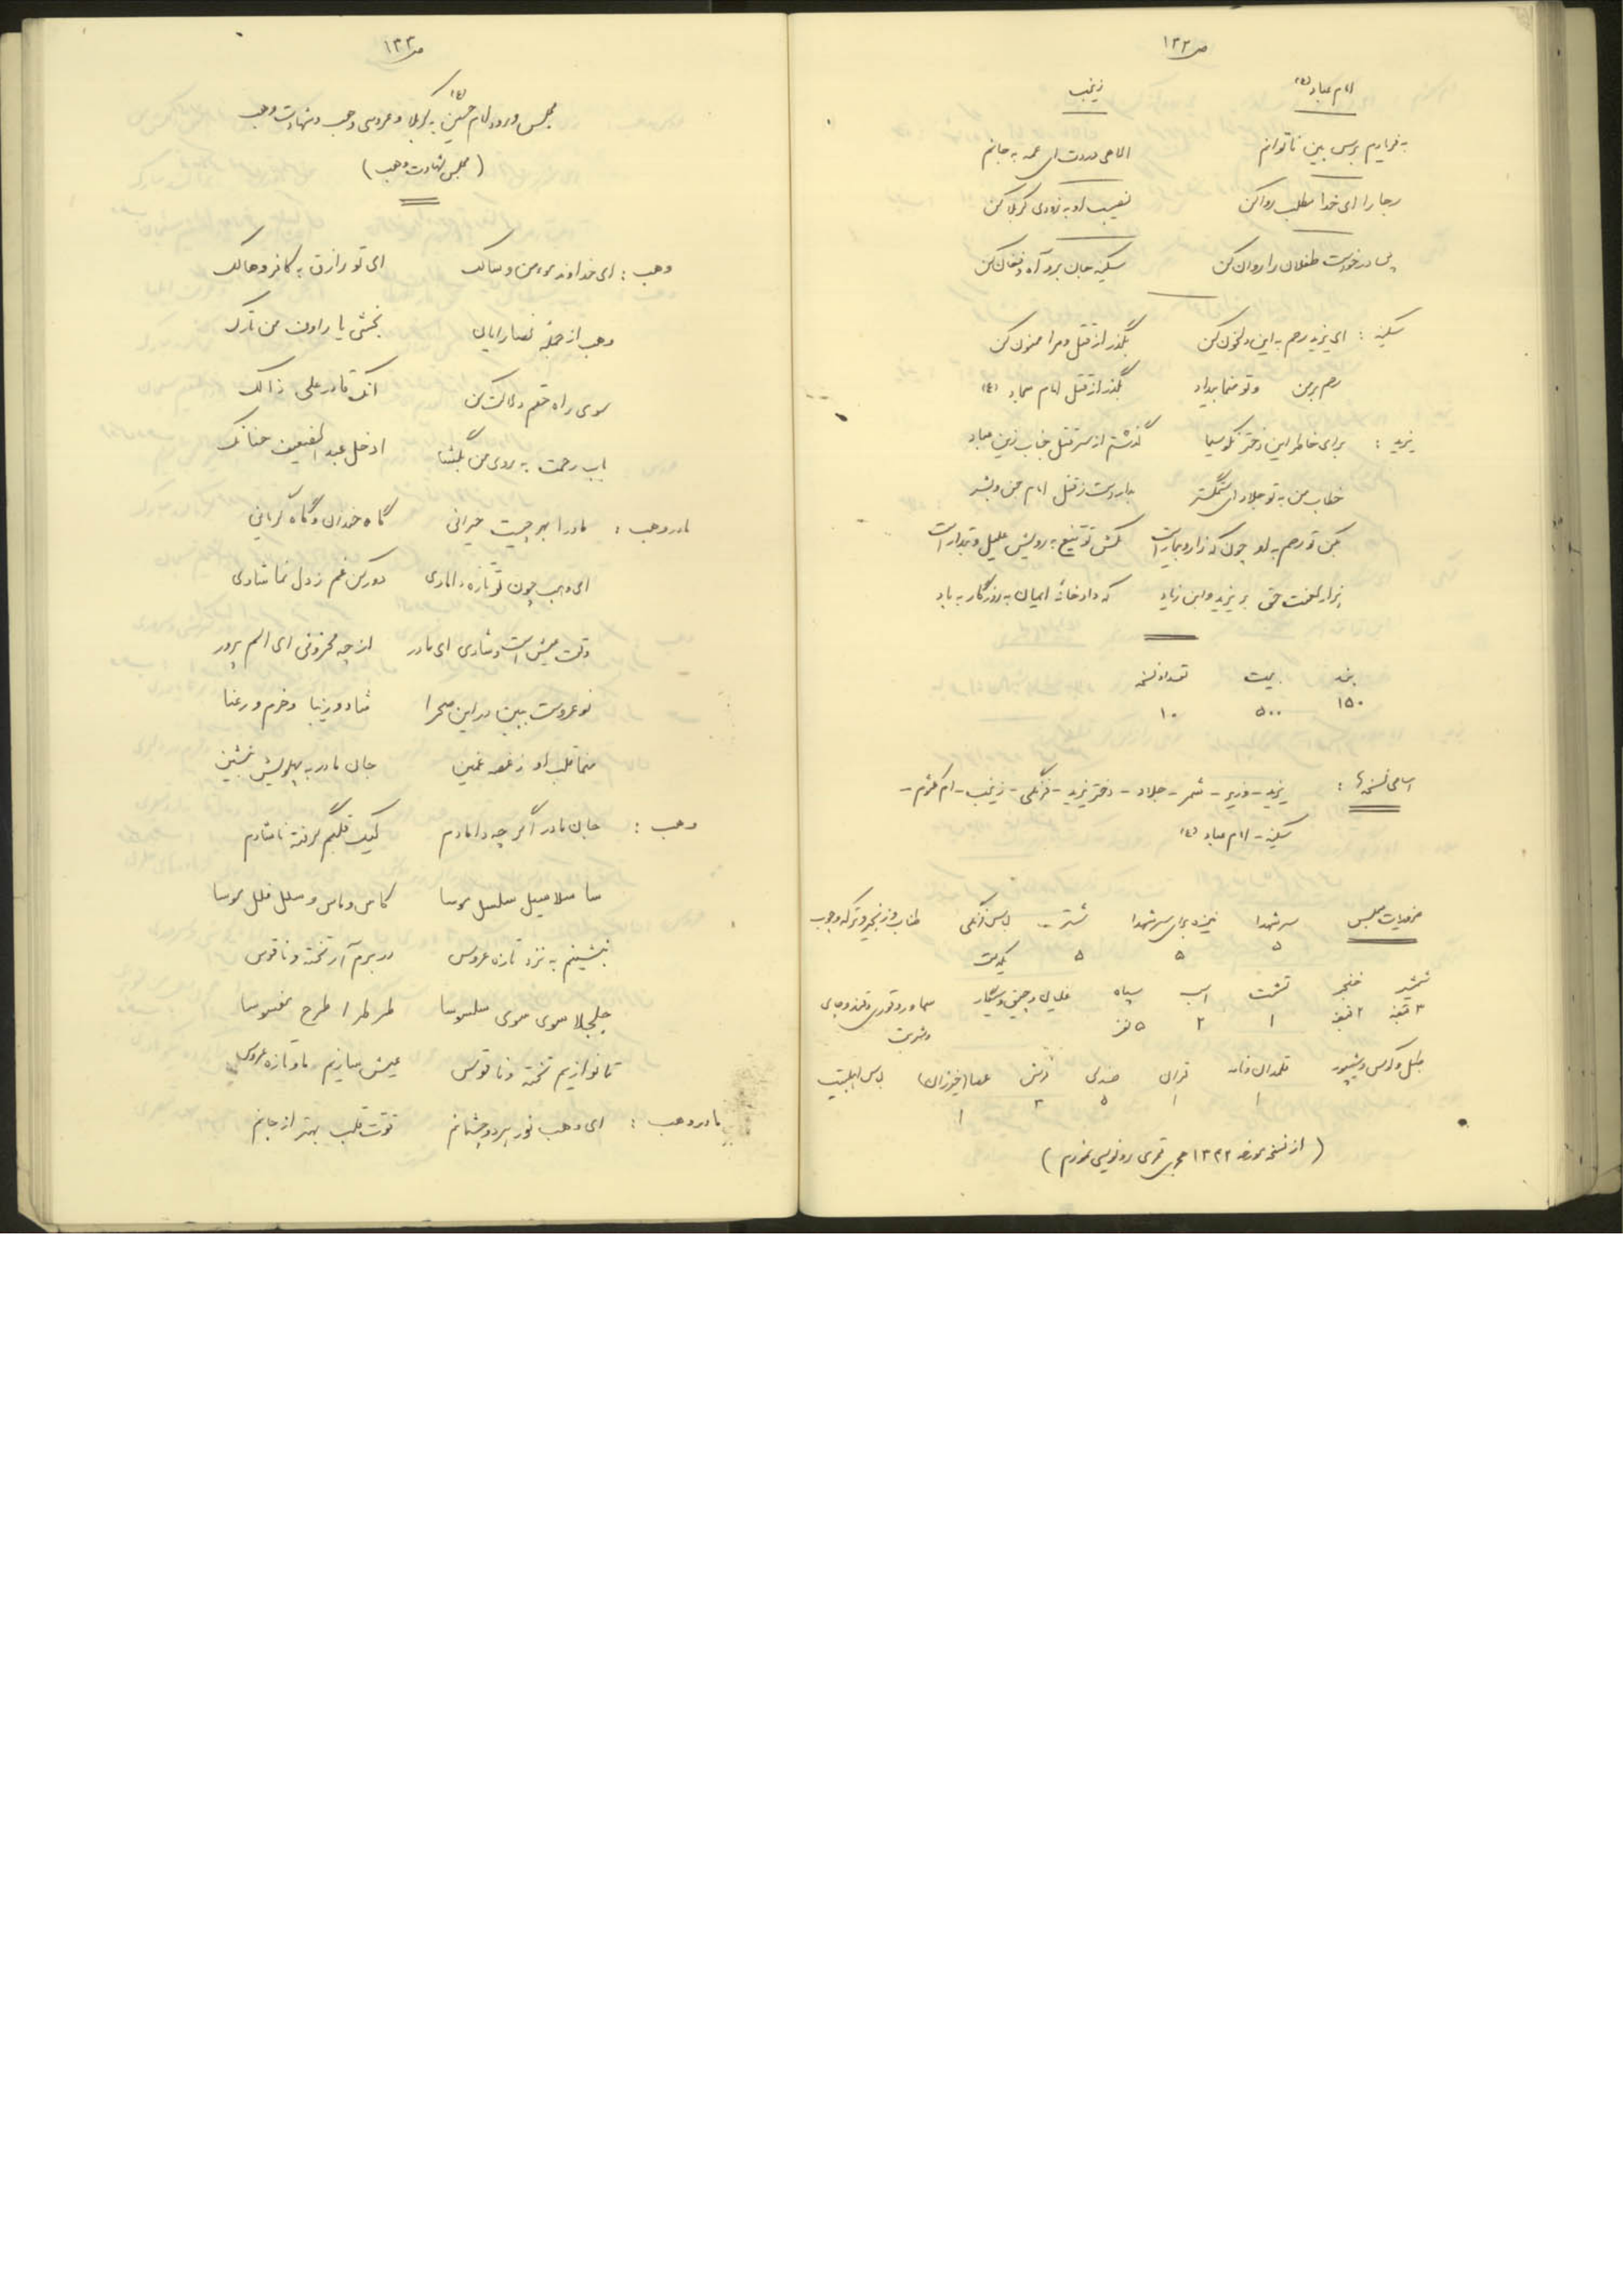 ص ۱۳۲
امام عباد (ع) زینب
به فریادم برس بین ناتوانم الاهی دردت ای عمه به جانم
رجا را ای خدا مطلب روا کن نصیب او به زودی کربلا کن
طفلان را روان کن سکینه جان برو آه و فغان کن
سکینه : ای یزید رحم به این دلخون کن بگذر از قتل و مرا ممنون کن
رحم بر من و تو منما بیداد بگذر از قتل امام سجاد (ع)
یزید : برای خاطر این دختر نکو سیما گذشتم از سر قتل جناب زین عباد
خطاب من به تو جلاد ای ستمگستر بدار دست ز قتل امام جن و بشر
بکن تو رحم به او چون که زار و بیمار است مکش تو تیغ به رویش علیل و تبدار است
هزار لعنت حق بر یزید و ابن زیاد که داد خانه ایمان به روزگار به باد
بند بیت تعداد نسخه
۱۵۰ ۵۰۰ ۱۰
اسامی نسخه‌ها : یزید - وزیر - شمر - جلاد - دختر یزید - فرنگی - زینب - ام کلثوم -
سکینه - امام عباد (ع)
مجلس سر شهدا نیزه برای سر شهدا شتر لباس فرنگی طناب و زنجیر و ترکه و چوب
۵ ۵ ۵ یکدست
شمشیر خنجر تشت اسب سپاه سماور و قوری و قند و چای
۳ قبضه ۲ قبضه ۱ ۲ ۵ نفر و شربت
طبل و کوس و شیپور قلمدان قرآن صندلی فرش عصا (خیزران) لباس اهلبیت
۱ ۱ ۵ ۳ ۱
(از نسخه مورخه ۱۳۴۲ هجری قمری رونویسی نمودم)
ص ۱۳۳
مجلس ورود امام حسین (ع) به کربلا و عروسی وهب و شهادت وهب
(مجلس شهادت وهب)
وهب : ای خداوند مومن و سالک ای تو رازق به کافر و هالک
وهب از جمله نصارایان
سوی راه حقم دلالت کن انک قادر علی ذالک
باب رحمت به روی من بگشا ادخل عبد الضعیف جنانک
مادر وهب : مادرا بهر چیست حیرانی گاه خندان و گاه گریانی
ای وهب چون تو تازه دامادی دور کن غم ز دل نما شادی
وقت عیش است و شادی ای مادر از چه محزونی ای الم پرور
نوعروست ببین در این صحرا شاد و زیبا و خرم و رعنا
منما قلب او ز غصه غمین جان مادر به پهلویش بنشین
وهب : جان مادر اگر چه دامادم لیک قلبم گرفته ناشادم
بنشینم به نزد تازه عروس در برم آر تخته و ناقوس
تا نوازیم تخته و ناقوس عیش سازیم با تازه عروس
مادر وهب : ای وهب نور هر دو چشمانم قوت قلب بهتر از جانم